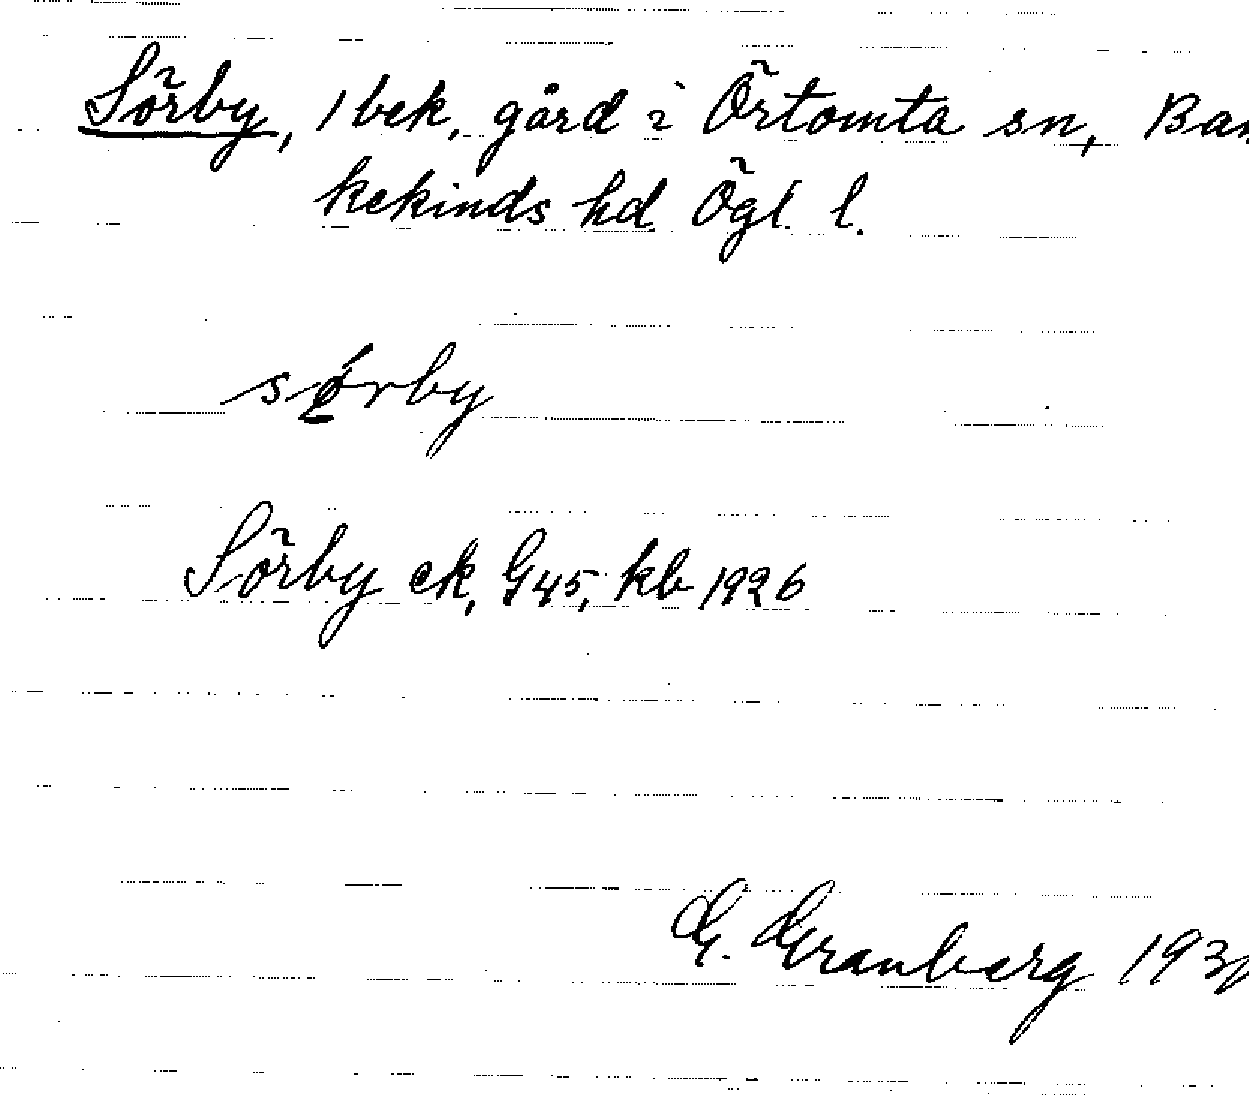 Sörby, 1 bek. gård i Örtomta sn, Ban
kekinds hd Ögl. l.
sørby
Sörby ek, G45, kb 1926
G. Granberg